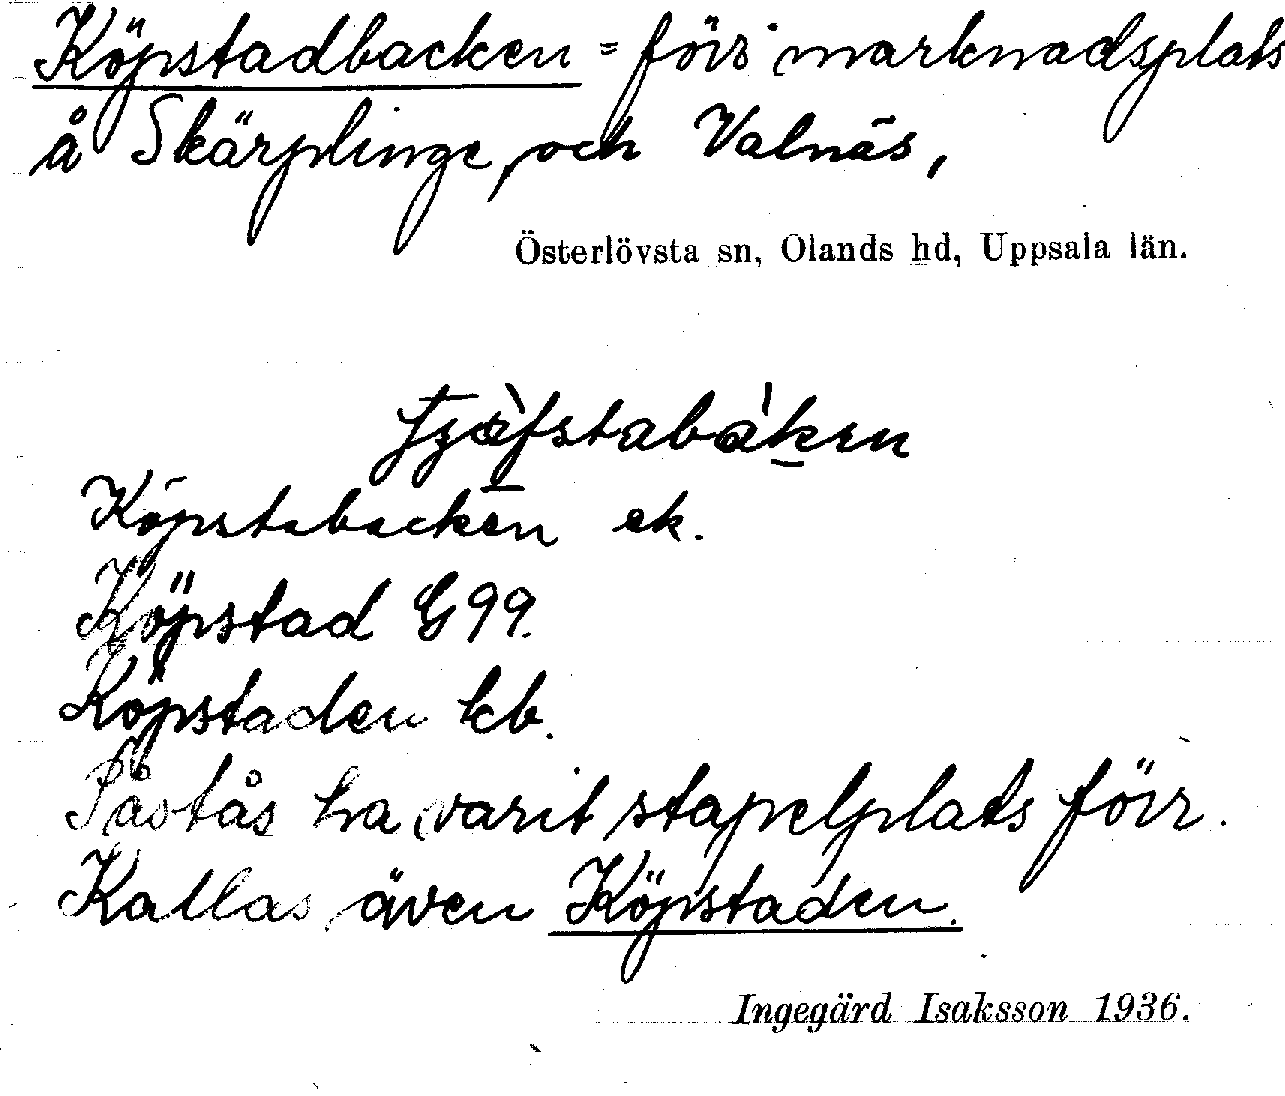 Köpstadbacken = förr marknadsplats
å Skärplinge, och Valnäs,
Österlövsta sn, Olands hd, Uppsala län.
Köpstabacken ek.
Köpstad G 99.
Köpstaden kb.
Påstås ha varit stapelplats förr.
Kallas även Köpstaden.
Ingegärd Isaksson 1936.